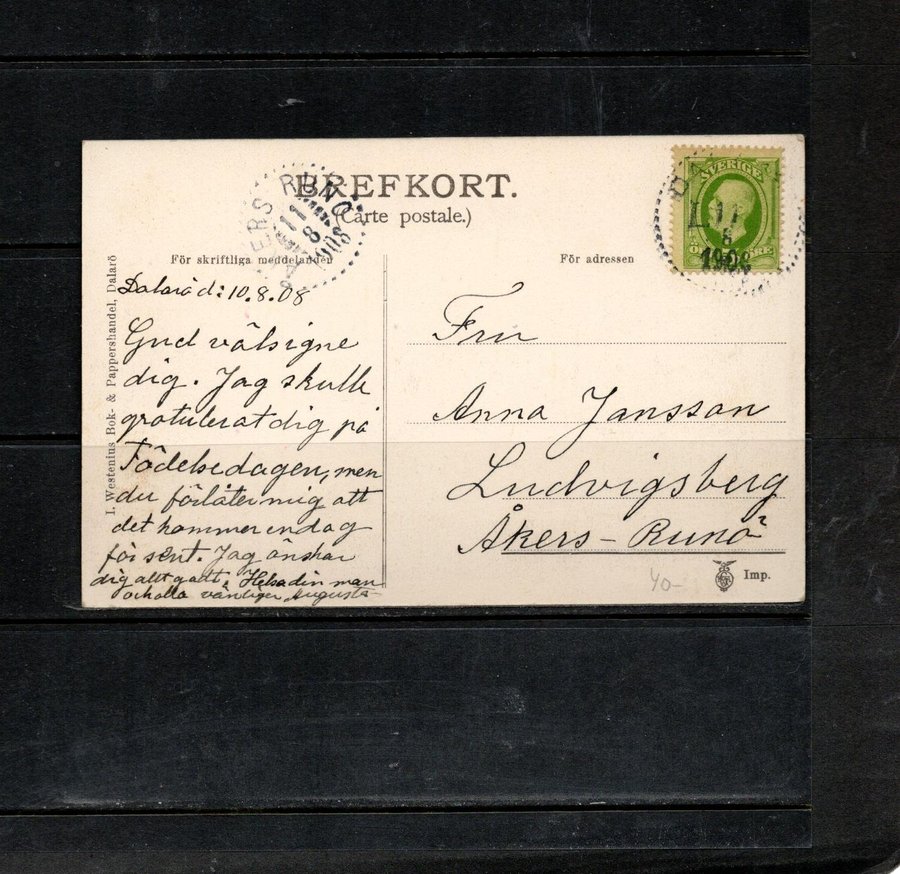 BREFKORT.
(Carte postale.)
ÅKERS RUNÖ
11
8
1908
SVERIGE
11
8
1908
För skriftliga meddelanden
För adressen
I. Westenius Bok- & Pappershandel, Dalarö
Dalarö d: 10.8.08
Gud välsigne
dig. Jag skulle
gratulerat dig på
Födelsedagen, men
du förlåter mig att
det kommer en dag
för sent. Jag önskar
dig allt godt. Helsa din man
och alla vänligen Augusta
Fru
Anna Jansson
Ludvigsberg
Åkers-Runö
40-
Imp.